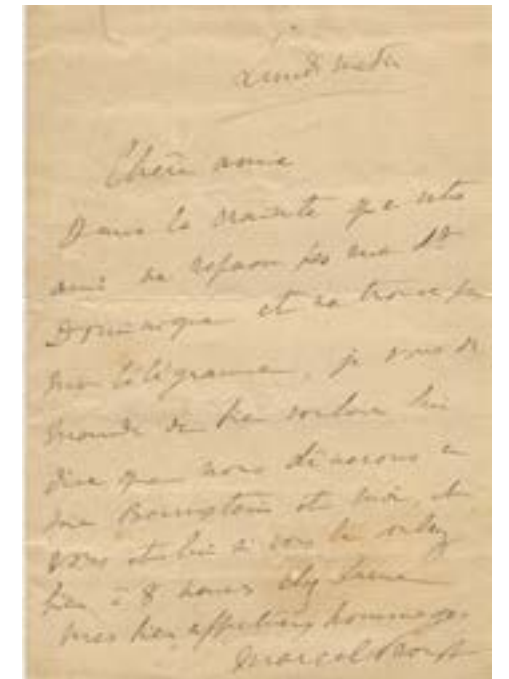 Lundi matin
Chère amie
Dans la crainte que votre
ami ne repasse pas rue St
Dominique et ne trouve pas
mon télégramme, je vous de
mande de bien vouloir lui
dire que nous dînerons
et moi, et
vous et lui si vous le voulez
bien à 8 heures chez
Mes bien affectueux hommages
Marcel Proust